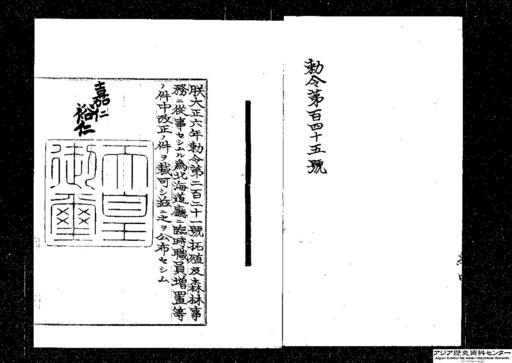 勅令第百四十五號
朕大正六年勅令第二百二十一號拓殖及森林事
務ニ從事セシムル為北海道廳ニ臨時職員增置等
ノ件中改正ノ件ヲ裁可シ茲ニ之ヲ公布セシム
嘉仁
裕仁
天皇
御璽
アジア歴史資料センター
Japan Center for Asian Historical Records